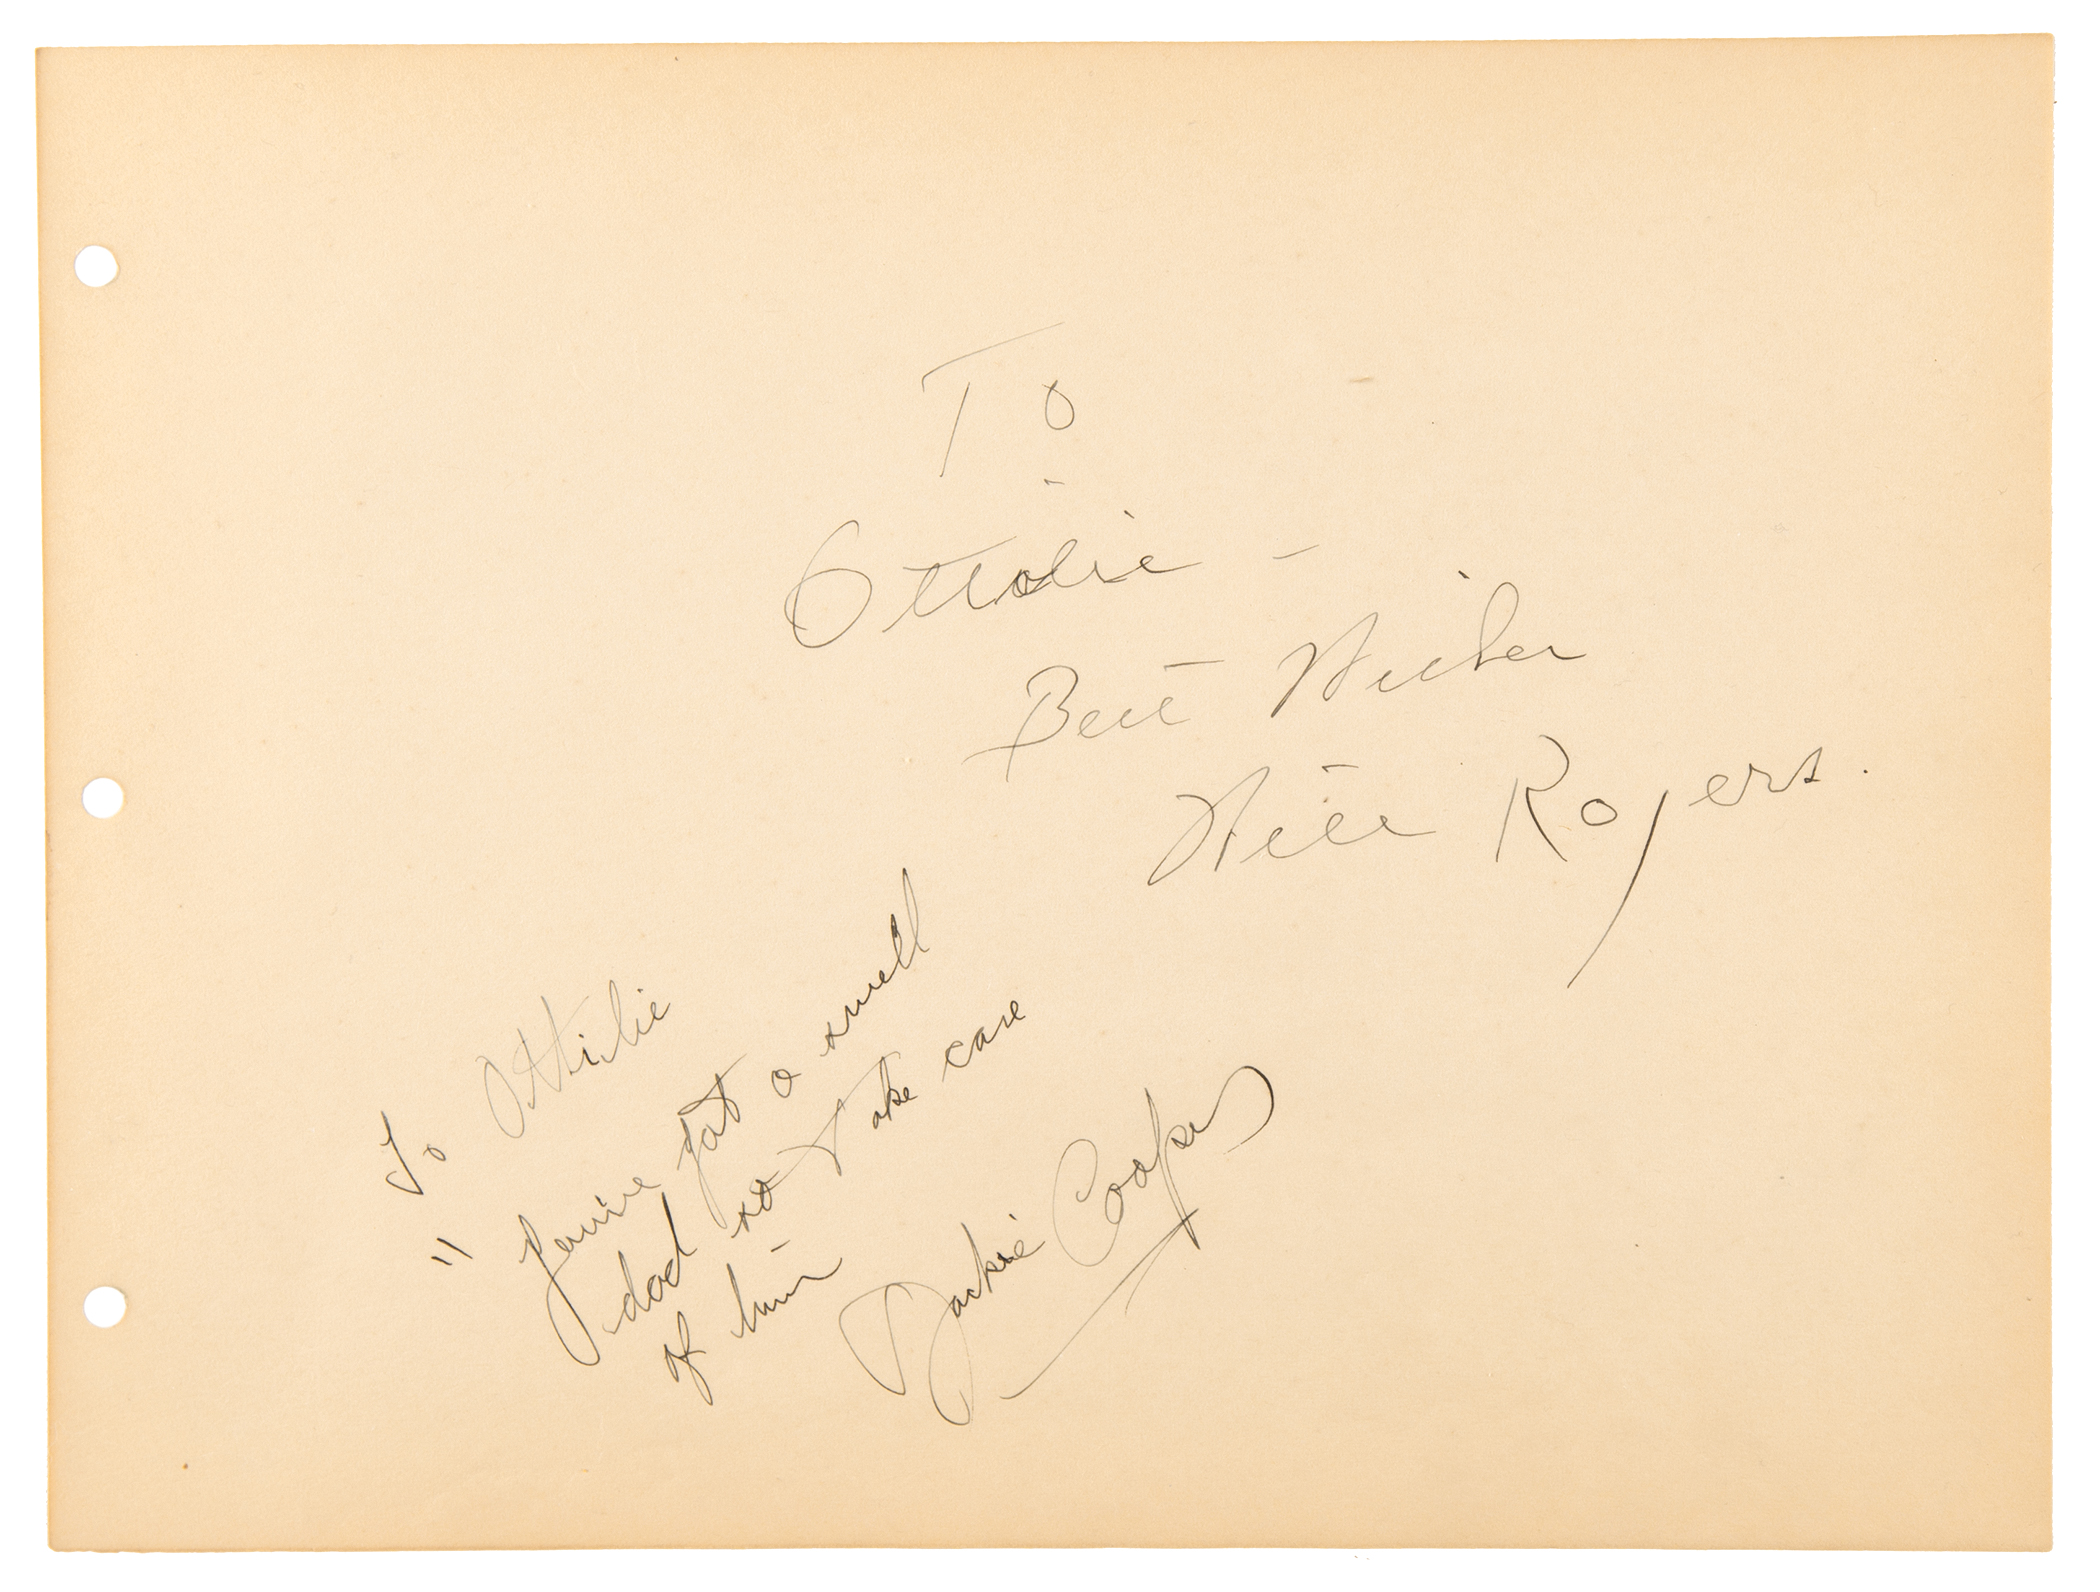 To
Ottolie -
Best Wishes
Will Rogers.
To Ottilie
" you've got a swell
dad so take care
of him
Jackie Cooper